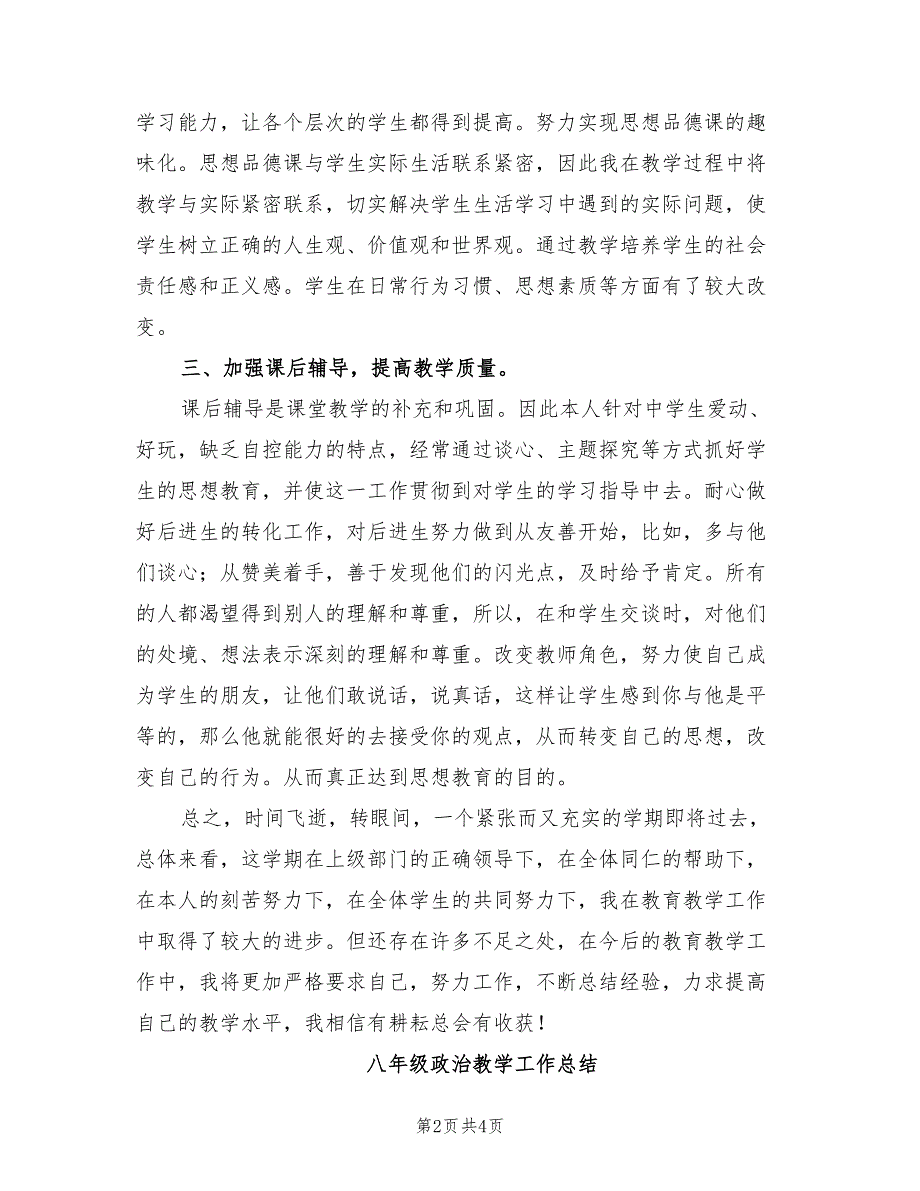 学习能力，让各个层次的学生都得到提高。努力实现思想品德课的趣
味化。思想品德课与学生实际生活联系紧密，因此我在教学过程中将
教学与实际紧密联系，切实解决学生生活学习中遇到的实际问题，使
学生树立正确的人生观、价值观和世界观。通过教学培养学生的社会
责任感和正义感。学生在日常行为习惯、思想素质等方面有了较大改
变。
三、加强课后辅导，提高教学质量。
课后辅导是课堂教学的补充和巩固。因此本人针对中学生爱动、
好玩，缺乏自控能力的特点，经常通过谈心、主题探究等方式抓好学
生的思想教育，并使这一工作贯彻到对学生的学习指导中去。耐心做
好后进生的转化工作，对后进生努力做到从友善开始，比如，多与他
们谈心；从赞美着手，善于发现他们的闪光点，及时给予肯定。所有
的人都渴望得到别人的理解和尊重，所以，在和学生交谈时，对他们
的处境、想法表示深刻的理解和尊重。改变教师角色，努力使自己成
为学生的朋友，让他们敢说话，说真话，这样让学生感到你与他是平
等的，那么他就能很好的去接受你的观点，从而转变自己的思想，改
变自己的行为。从而真正达到思想教育的目的。
总之，时间飞逝，转眼间，一个紧张而又充实的学期即将过去，
总体来看，这学期在上级部门的正确领导下，在全体同仁的帮助下，
在本人的刻苦努力下，在全体学生的共同努力下，我在教育教学工作
中取得了较大的进步。但还存在许多不足之处，在今后的教育教学工
作中，我将更加严格要求自己，努力工作，不断总结经验，力求提高
自己的教学水平，我相信有耕耘总会有收获！
八年级政治教学工作总结
第2页共4页